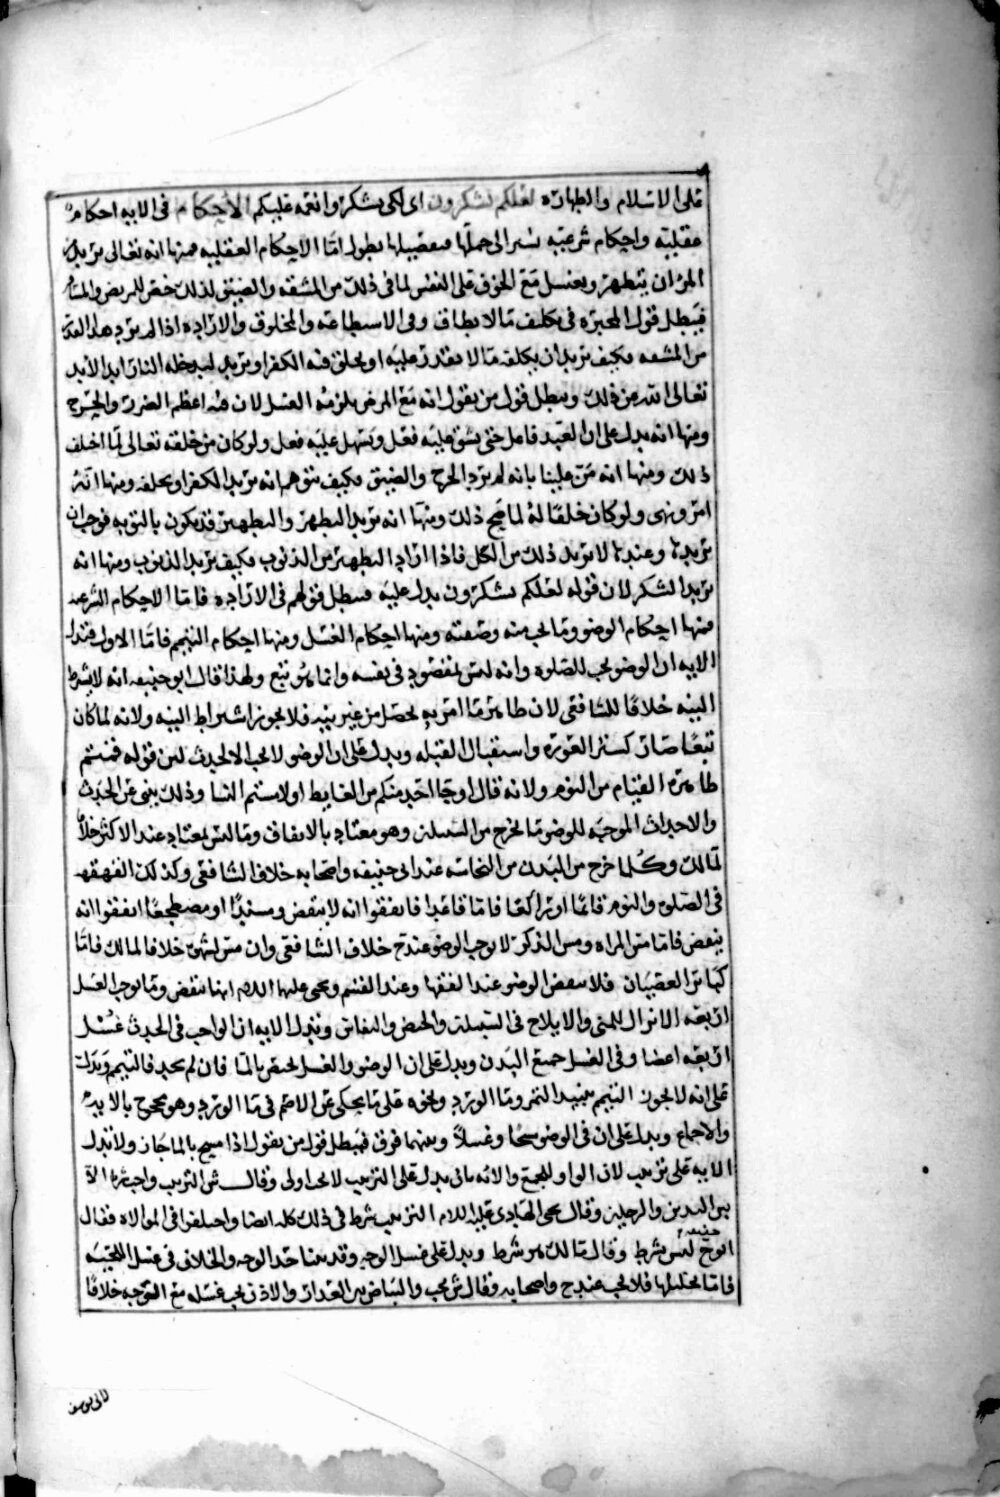 على الاسلام والطهارة لعلكم تشكرون اى لكى تشكروا نعمه عليكم الاحكام فى الايه احكام
عقلية واحكام شرعيه نشير الى جملها فتفصيلها يطول اما الاحكام العقليه فمنها انه تعالى يريد
المرء ان يتطهر ويغتسل مع الخوف على النفس لما فى ذلك من المشقه والضيق لذلك خص المريض والمسافر
فيبطل قول المجبره فى تكليف مالا يطاق وفى الاستطاعه والمخلوق والارادة اذا لم يرد هذا القدر
من المشقه فكيف يريد ان يكلفه مالا يقدر عليه او يخلق فيه الكفر او يريد ليدخله النار ابد الابد
تعالى الله عن ذلك ويبطل قول من يقول انه مع المرض يلزمه الغسل لان فيه اعظم الضرر والحرج
ومنها انه يدل على ان العبد فاعل حتى يشق عليه فعل ويسهل عليه فعل ولو كان من خلقه تعالى لما اختلف
ذلك ومنها انه من علينا بانه لم يرد الحرج والضيق فكيف يتوهم انه يريد الكفر او يخلقه ومنها انه
امر ونهى ولو كان خلقا له لما صح ذلك ومنها انه يريد التطهر والتطهير قد يكون بالتوبه فوجب ان
يريدها وعندهم لا يريد ذلك من الكل فاذا اراد التطهير من الذنوب فكيف يريد الذنوب ومنها انه
يريد الشكر لان قوله لعلكم تشكرون يدل عليه فيبطل قولهم فى الارادة فاما الاحكام الشرعيه
فمنها احكام الوضو وما يجب منه وصفته ومنها احكام الغسل ومنها احكام التيمم فاما الاول فتدل
الايه ان الوضو يجب للصلوه وانه ليس بمقصود فى نفسه وانما هو تبع ولهذا قال ابو حنيفه انه لا يشترط
النيه خلافا للشافعى لان ظاهر ما امر به يحصل من غير نيه فلا يجوز اشتراط النيه ولانه لما كان
تبعا صار كستر العورة واستقبال القبله ويدل على ان الوضو لا يجب الا لحدث لان قوله قمتم
ظاهره القيام من النوم ولانه قال او جا احد منكم من الغايط او لامستم النسا وذلك ينبى عن الحدث
والاحداث الموجبه للوضو ما يخرج من السبيلين وهو معتاد بالاتفاق وما ليس بمعتاد عند الاكثر خلافا
لمالك وكلما خرج من البدن من النجاسه عند ابى حنيفه واصحابه خلاف الشافعى وكذلك القهقهه
فى الصلوه والنوم قائما او راكعا فاما قاعدا فاتفقوا انه لا ينقض ومستندا او مضطجعا اتفقوا انه
ينقض فاما مس المراه ومس الذكر لا يوجب الوضو عند ح خلاف الشافعى وان مس لشهوة خلافا لمالك فاما
كبائر العصيان فلا ينقض الوضو عند الفقها وعند القسم ويحيى عليهما السلم انها تنقض وما يوجب الغسل
اربعه الانزال للمنى والايلاج فى السبيلين والحيض والنفاس وتدل الايه ان الواجب فى الحدث غسل
اربعه اعضا وفى الغسل جميع البدن ويدل على ان الوضو والغسل يختص بالما فان لم يجد فالتيمم ويدل
على انه لا يجوز التيمم بنبيذ التمر وما الورد ونحوه على ما يحكى عن الاصم فى ما الورد وهو محجوج بالايه
والاجماع ويدل على ان فى الوضو مسحا وغسلا وبينهما فرق فيبطل قول من يقول اذا مسح بالما جاز ولا تدل
الايه على ترتيب لان الواو للجمع والا انه ما فى يدل على الترتيب لا محاله اولى وقال ش الترتيب واجب الا
بين اليدين والرجلين وقال يحيى الهادى عليه السلم الترتيب شرط فى ذلك كله ايضا واختلفوا فى الموالاه فقال
ابو ح حنيفه ليس بشرط وقال مالك هو شرط ويدل على غسل الوجه وقد بينا حد الوجه والخلاف فى غسل اللحيه
فاما تخليلها فلا يجب عند ح واصحابه وقال ش يجب والبياض بين العذار والاذن يجب غسله مع الوجه خلافا
لابى يوسف